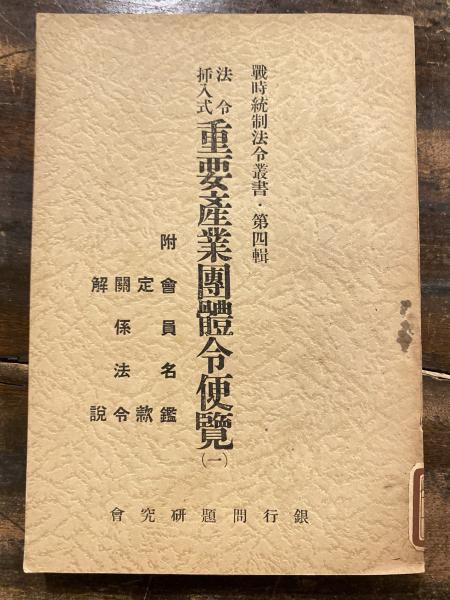 戰時統制法令叢書・第四輯
法令
挿入式
重要產業團體令便覽(一)
附 會員名鑑
定款
關係法令
解說
銀行問題研究會